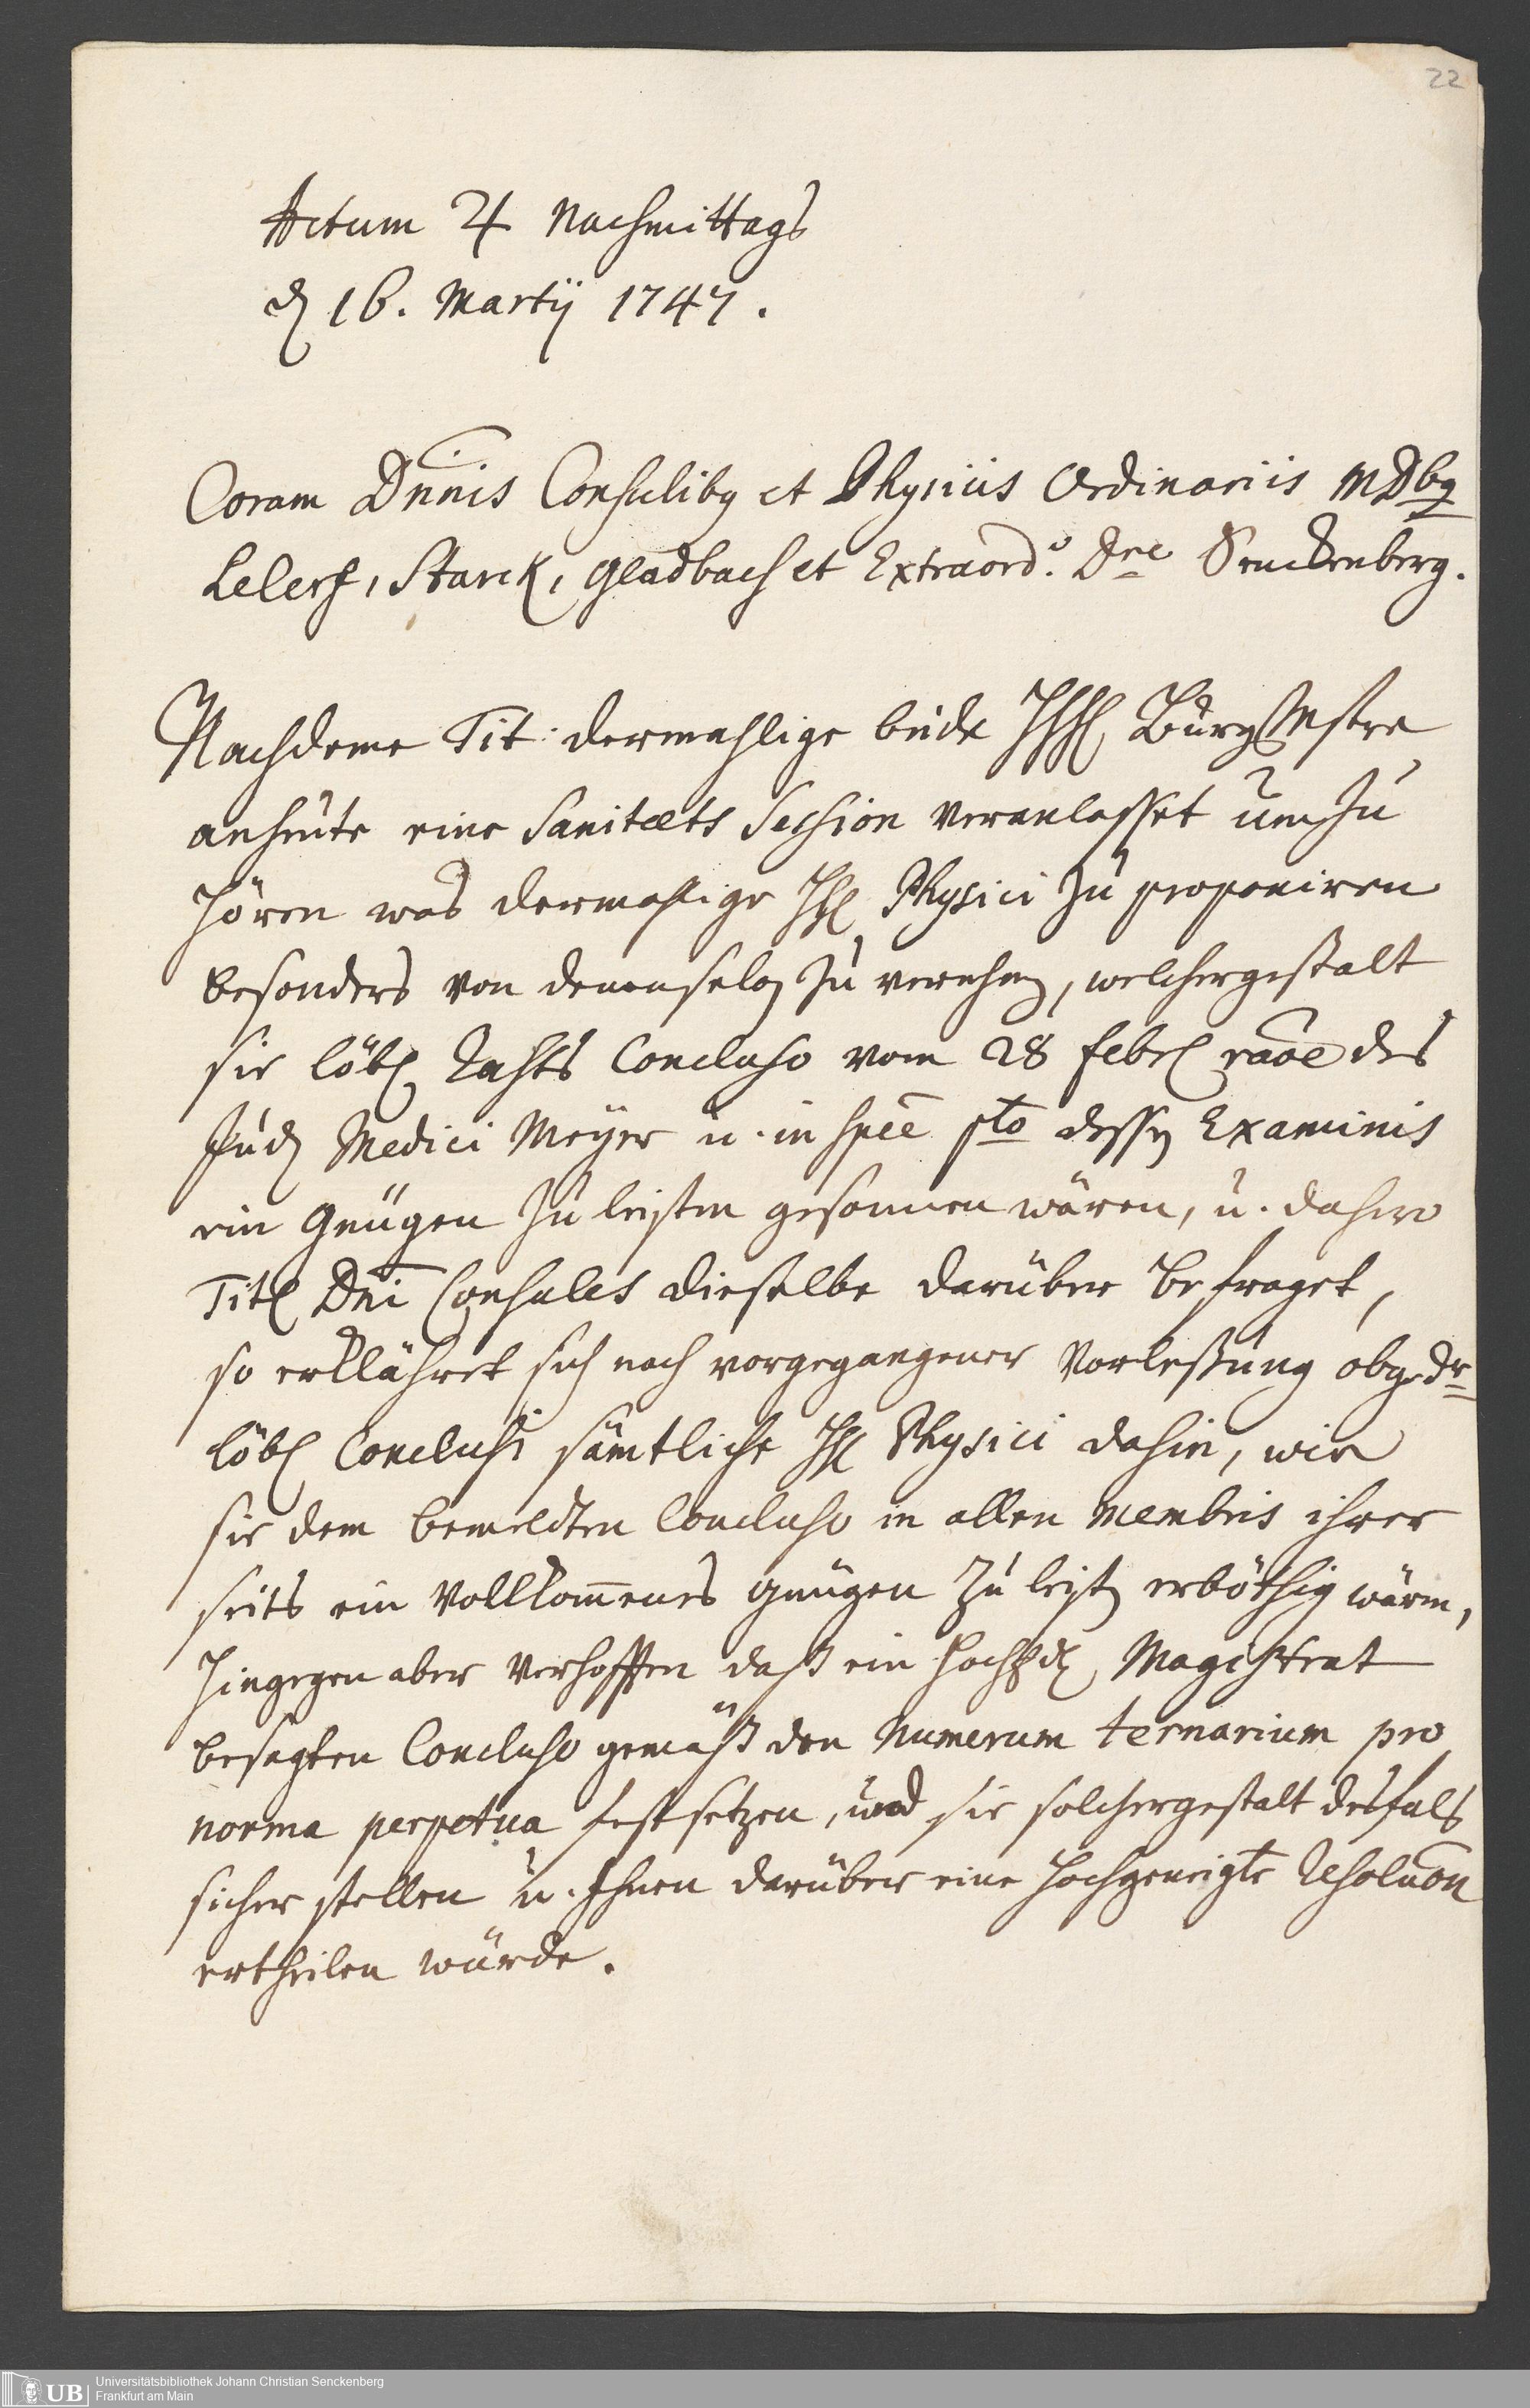 22
Actum ♃ Nachmittags
d 16. Martij 1747.
Coram Dnnis Consulibg et Physicis Ordinariis MDbg
Lelerf, Starck, Gladbach et Extraord.o Dre Senckenberg.
Nachdeme Tit: dermahlige beide HHH BurgerMstre
anheute eine Sanitæts Session veranlasset um zu
hören was dermahlige HH Physici zu proponiren
besonders von denenselbn zu vernehmn, welchergestalt
sie löbl Rahts Concluso vom 28 febrl raōe des
Judn Medici Meyer u. in speē pto dessn Examinis
ein Gnügen zu leisten gesonnen wären, u. dahero
Titl Dni Consules dieselbe darüber befraget,
so erklähret sich nach vorgegangener Vorleßung obgedr
löbl Conclusi sämtliche HH Physici dahin, wie
sie dem bemeldten Concluso in allen Membris ihrer
seits ein Vollkom̄enes gnügen zu leistn erböthig wären,
hingegen aber verhofften daß ein Hochedl Magistrat
besagten Concluso gemäß den Numerum ternarium pro
norma perpetua fest setzen, und sie solchergestalt desfals
sicher stellen u. Ihnen darüber eine hochgeneigte Resoluōn
ertheilen würde.
UB
Universitätsbibliothek Johann Christian Senckenberg
Frankfurt am Main